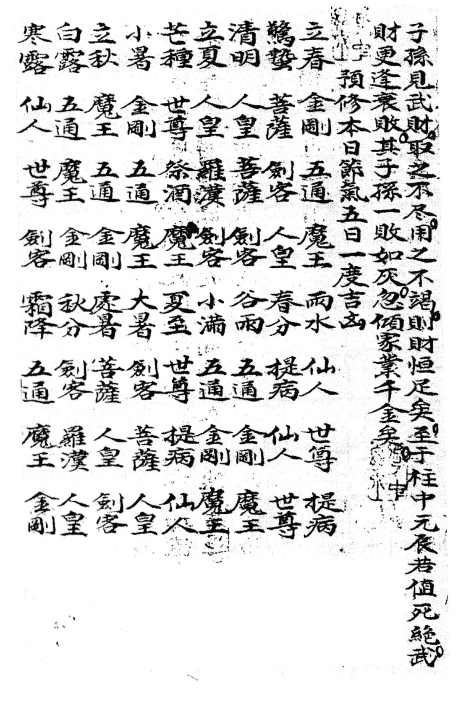 子孫見武財取之不尽用之不竭則財恒足矣至于柱中元辰若值死絶武
財更逢衰敗其子孫一敗如灰忽傾家業千金矣
預修本日節氣五日一度吉凶
立春 金剛 五通 魔王 雨水 仙人 世尊 提病
驚蟄 菩薩 劍客 人皇 春分 提病 仙人 世尊
清明 人皇 菩薩 劍客 谷雨 五通 金剛 魔王
立夏 人皇 羅漢 劍客 小滿 五通 金剛 魔王
芒種 世尊 祭酒 魔王 夏至 世尊 提病 仙人
小暑 金剛 五通 魔王 大暑 劍客 菩薩 人皇
立秋 魔王 五通 金剛 處暑 菩薩 人皇 劍客
白露 五通 魔王 金剛 秋分 劍客 羅漢 人皇
寒露 仙人 世尊 劍客 霜降 五通 魔王 金剛